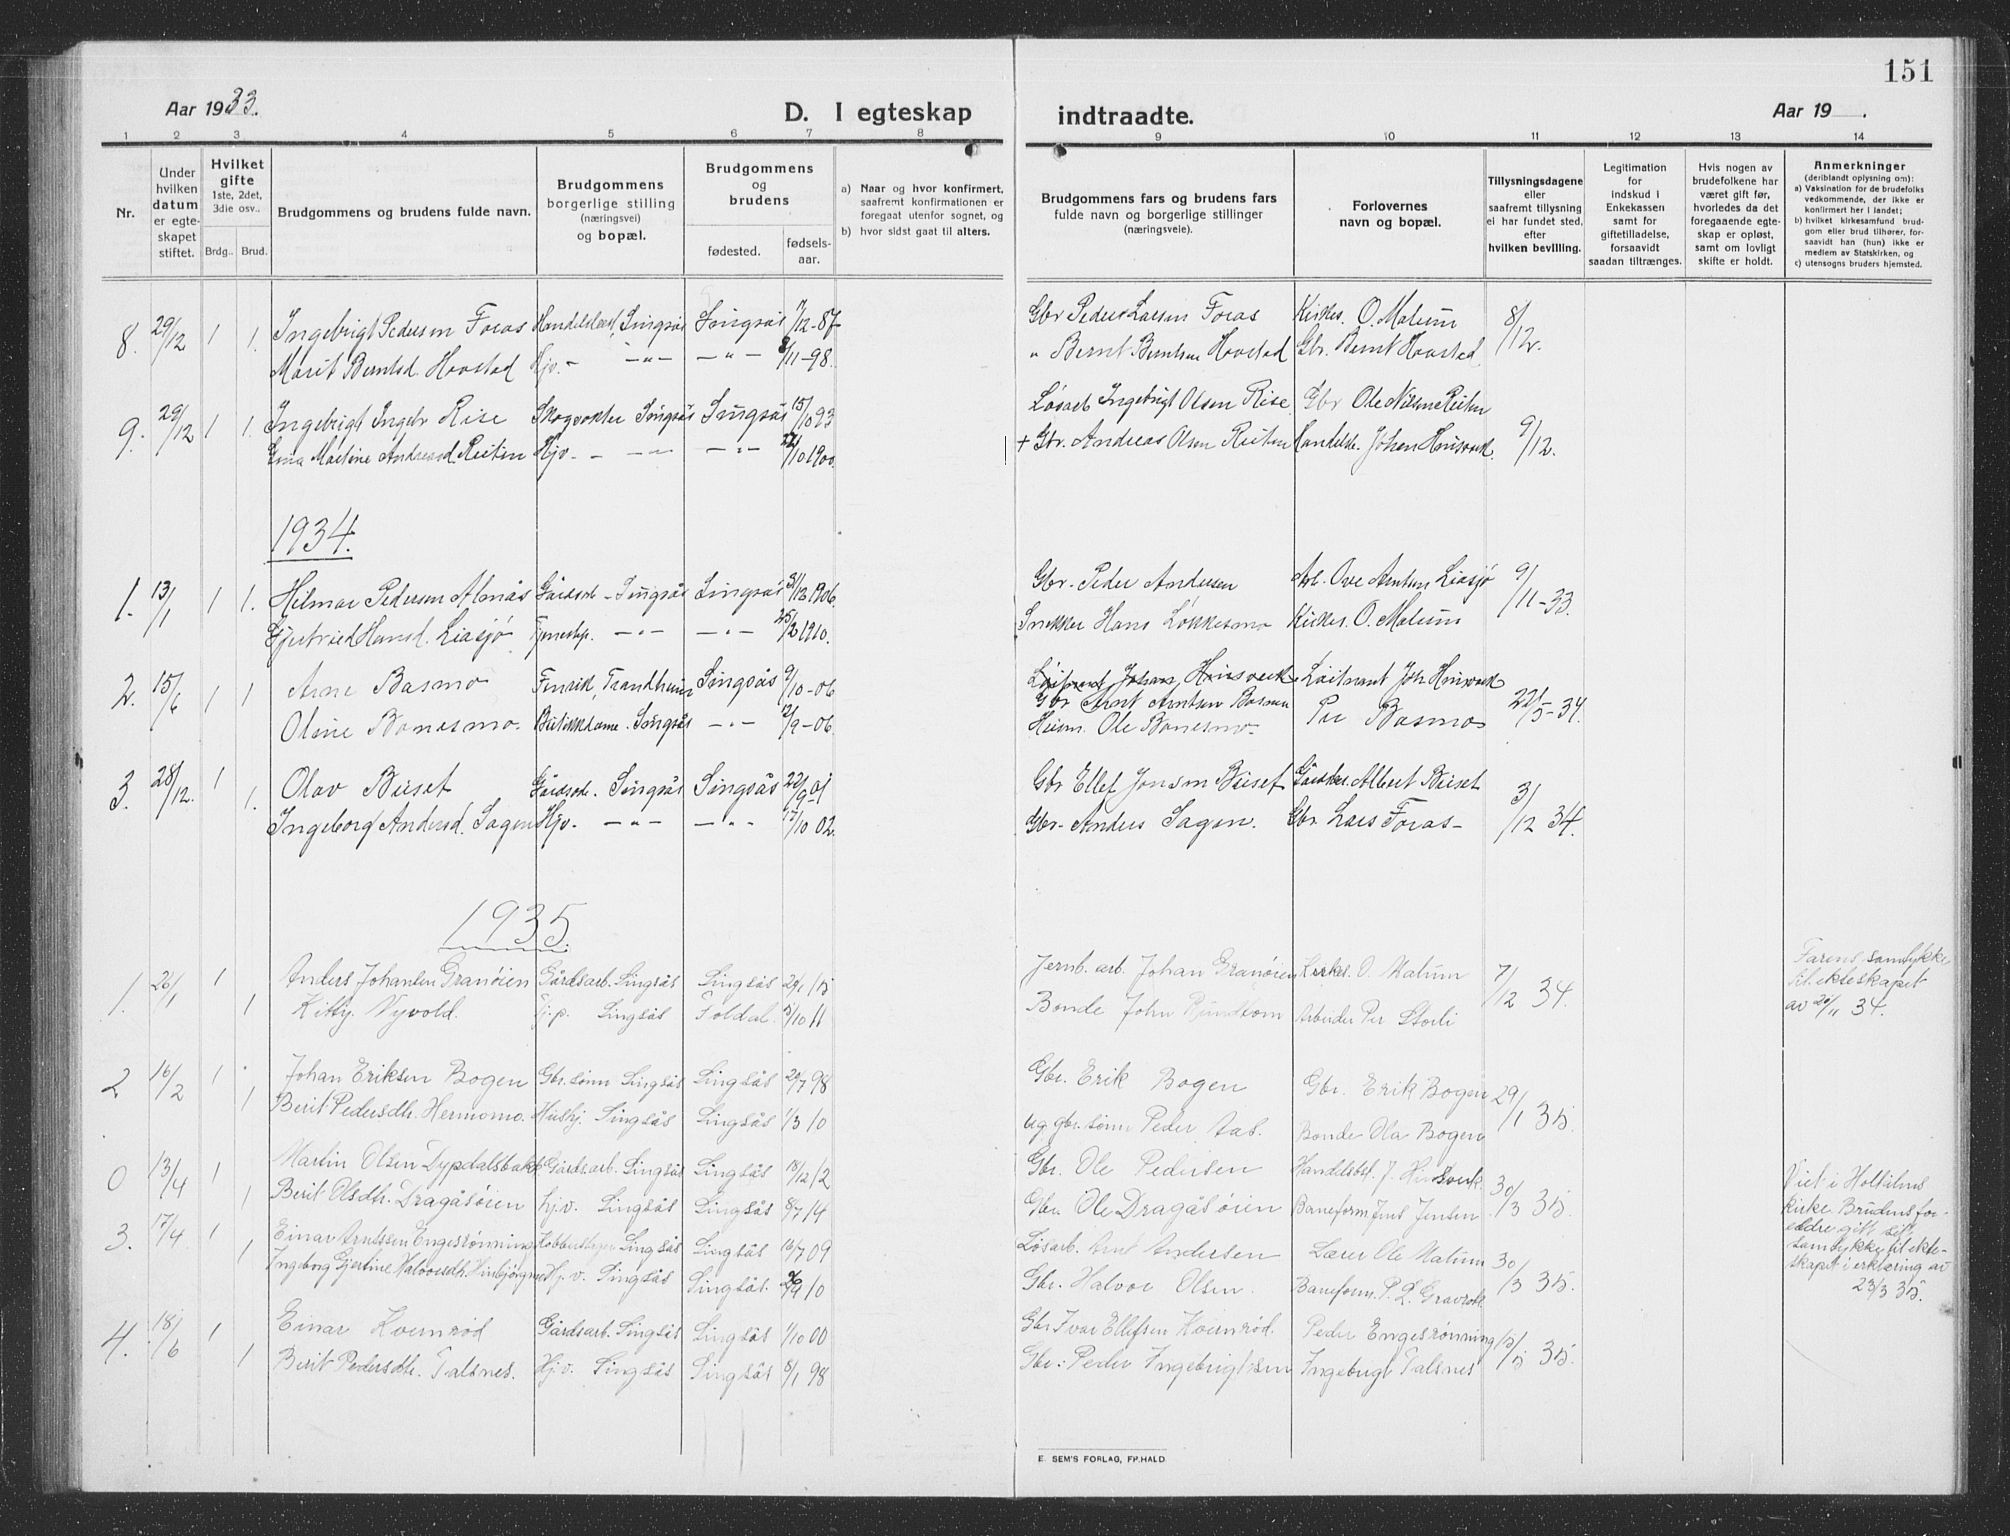 151
Aar 1933.
D. I egteskap
indtraadte.
Aar 19 .
1 2 3 4 5 6 7 8 9 10 11 12 13 14
Nr.
Under
hvilken
datum
er egte-
skapet
stiftet.
Hvilket
gifte
1ste, 2det,
3die osv..
Brdg.. Brud.
Brudgommens og brudens fulde navn.
Brudgommens
borgerlige stilling
(næringsvei)
og bopæl.
Brudgommens
og
brudens
fødested.
fødsels-
aar.
a) Naar og hvor konfirmert,
saafremt konfirmationen er
foregaat utenfor sognet, og
b) hvor sidst gaat til alters.
Brudgommens fars og brudens fars
fulde navn og borgerlige stillinger
(næringsveie).
Forlovernes
navn og bopæl.
Tillysningsdagene
eller
saafremt tillysning
ei har fundet sted,
efter
hvilken bevilling.
Legitimation
for
indskud i
Enkekassen
samt for
giftetilladelse,
forsaavidt
saadan tiltrænges.
Hvis nogen av
brudefolkene har
været gift før,
hvorledes da det
foregaaende egte-
skap er opløst,
samt om lovligt
skifte er holdt.
Anmerkninger
(deriblandt oplysning om):
a) Vaksination for de brudefolks
vedkommende, der ikke er
konfirmert her i landet;
b) hvilket kirkesamfund brud-
gom eller brud tilhører, for-
saavidt han (hun) ikke er
medlem av Statskirken, og
c) utensogns bruders hjemsted.
8. 29/12 1 1. Ingebrigt Pedersen Foras Singsås Singsås 7/12-87 Gbr Peder Larsen Foras Kirkes. O. Malum 8/12.
Marit Berntsd. Hovstad Hjv. - -"- -"- 8/11-98. " Bernt Berntsen Hovstad Gbr. Bernt Hovstad
9. 29/12 1 1. Ingebrigt Ingebr Rise Skogvokter Singsås Singsås 15/10 93 Løsarb Ingebrigt Olsen Rise Gbr Ole Nilsen Reiten 9/12.
Martine Andreasd. Reiten Hjv. - -"- -"- 22/10 1900. + Gbr. Andreas Olsen Reiten Handelsb. Johan Hinsverk.
1934.
1. 13/1 1 1. Hilmar Pedersen Almås Gårdsarb - Singsås Singsås 31/12 1906. Gbr. Peder Andersen Arb. Ove Arntsen Liasjø 9/11-33.
Gjertrud Hansd. Liasjø Tjenestep. -"- -"- 25/2 1910. Snekker Hans Løkkesmo Kirkes. O. Malum
2. 15/6 1 1 Arne Basmo Fenrik, Trondheim Singsås 9/10-06 Løitnant Johan Hinsverk Løitnant Joh Hinsverk 22/5-34.
Gbr Arnt Arntsen Basmo
Oline Bonesmo. Butikkdame. Singsås -"- 12/9-06. Ole Bonesmo. Per Basmo
3. 28/12. 1 1. Olav Buset Gårdsarb. Singsås Singsås 22/9 01 Gbr Ellef Jonsen Buset Albert Buset 3/12 34.
Ingeborg Andersd. Sagen Hjv. -"- -"- 17/10 02. Gbr. Anders Sagen. Gbr. Lars Foras
1935.
1. 26/1 1 Anders Johansen Granøien Gårdsarb. Singsås Singsås 29/1 15 Jernb. arb. Johan Granøien Kirkes. O. Malum 7/12 34. Farens samtykke
til ekteskapet
av 20/11 34.
1 Kitty Nyvold. Tj.p. Singsås Foldal. /10 11 Bonde John Arbeider Per Storli
2 16/2 1 Johan Eriksen Bogen Gbr.sønn Singsås Singsås 20/7 98 Gbr. Erik Bogen Gbr. Erik Bogen 29/1 35.
1 Berit Pedersdtr. Hermomo. Hushj. Singsås Singsås 1/3 10 ug gbr. sønn Peder Aas. Bonde Ola Bogen
0 13/4 1 Martin Olsen Dypdalsbakk Gårdsarb. Singsås Singsås 18/12 12 Gbr. Ole Pedersen Handelsbst. J. Hinsverk. 30/3 35. Viet i Holtålens
kirke Brudens for-
eldre gitt sitt
samtykke til ekte-
skapet i erklæring av
23/3 35.
1 Berit Olsdtr. Dragåsøien hj.v. Singsås Singsås 8/7 14 Gbr. Ole Dragåsøien Baneform. Jens Jensen
3. 17/4 1 Einar Arntssen Engesrønning Singsås Singsås 16/7 09 Løsarb. Arnt Andersen Lærer Ole Malum 30/3 35.
1 Ingeborg Gjertine Halvorsdtr. Hj.v. Singsås Singsås. 10 Gbr. Halvor Olsen. Baneform. P. L. Gravrok
4. 18/6 1 Einar Kvernrød Gårdsarb. Singsås Singsås 1/10 00 Gbr Ivar Ellefsen Kvernrød. Peder Engesrønning 13/5 35.
1 Berit Pedersdtr. Talsnes. Hj.v. Singsås Singsås 8/1 98 Gbr: Peder Ingebrigtsen Ingebrigt Talsnes
E. SEM'S FORLAG, FR.HALD